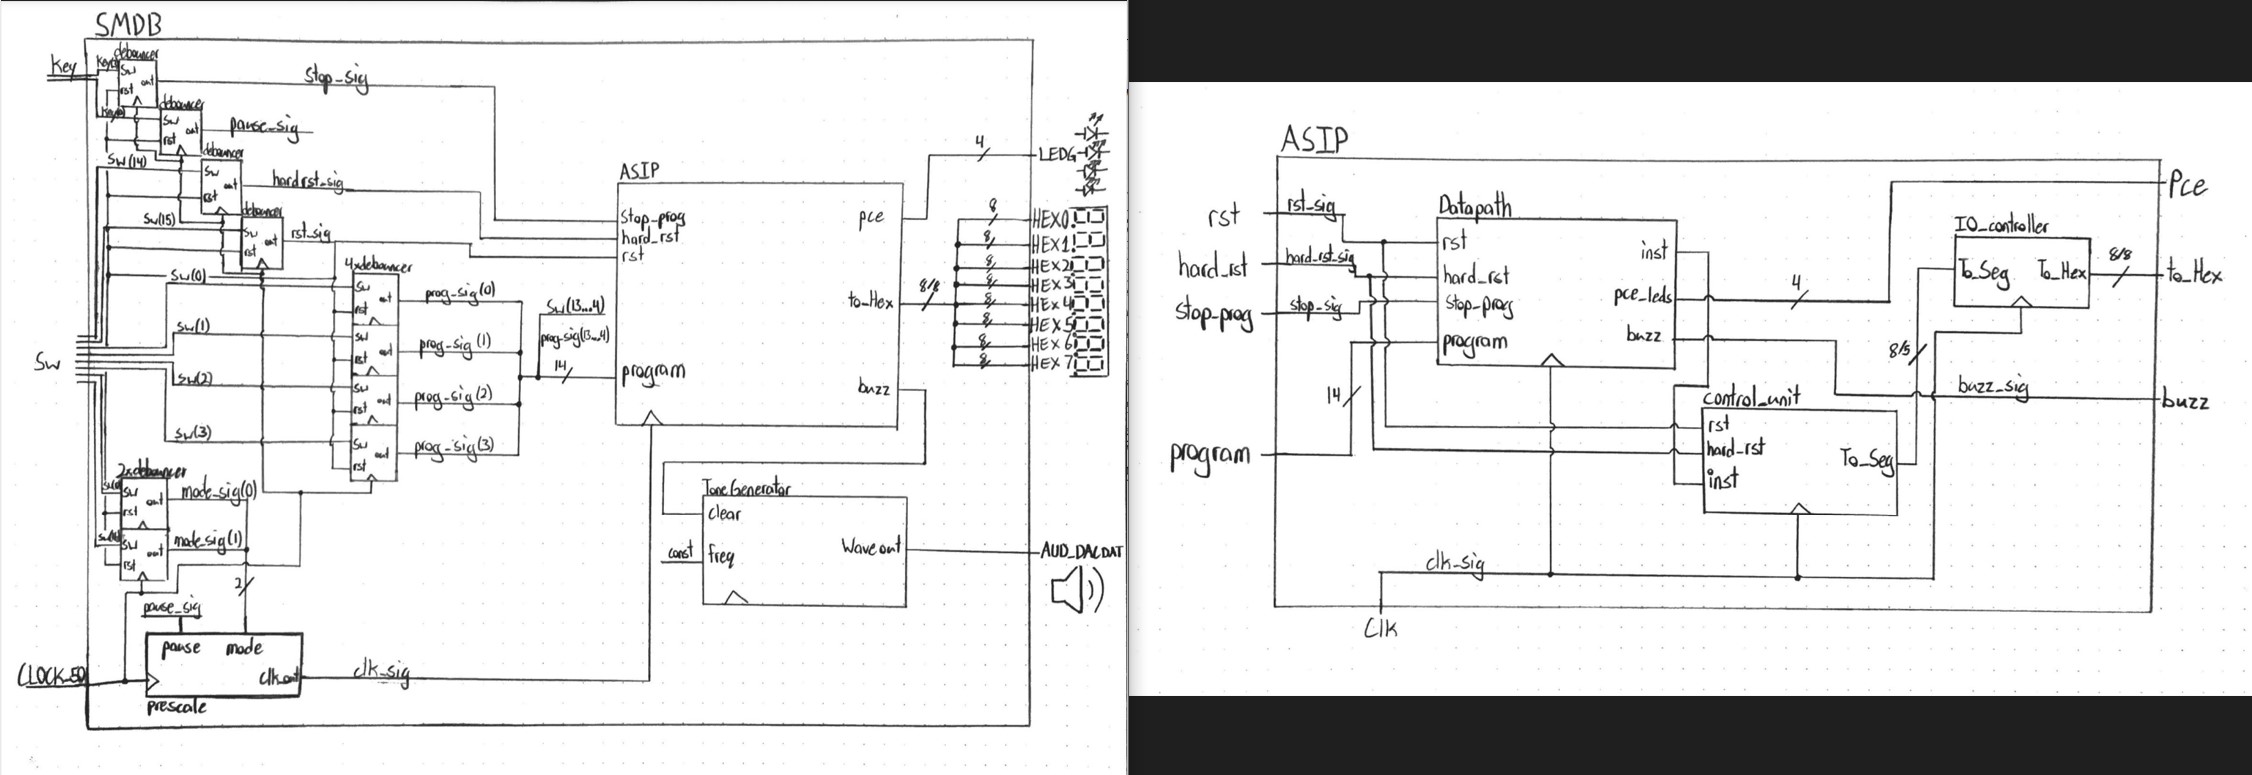 SMDB
debouncer
Key
sw
out
rst
stop_sig
debouncer
sw
out
rst
pause_sig
debouncer
sw(14)
sw
out
rst
hardrst_sig
debouncer
sw(15)
sw
out
rst
rst_sig
4xdebouncer
sw(0)
sw
out
rst
prog_sig(0)
sw(1)
sw
out
rst
prog_sig(1)
sw(2)
sw
out
rst
prog_sig(2)
sw(3)
sw
out
rst
prog_sig(3)
SW
sw(13...4)
prog_sig(13...4)
14
2xdebouncer
sw
out
rst
mode_sig(0)
sw
out
rst
mode_sig(1)
2
pause_sig
pause mode
clk_out
CLOCK_50
prescale
clk_sig
ASIP
stop_prog
hard_rst
rst
program
pce
to_Hex
buzz
4
LEDG
8/8
8
HEX0
8
HEX1
8
HEX2
8
HEX3
8
HEX4
8
HEX5
8
HEX6
8
HEX7
ToneGenerator
clear
const
freq
Waveout
AUD_DACDAT
ASIP
rst
rst_sig
hard_rst
hard_rst_sig
stop_prog
stop_sig
program
14
Datapath
rst
hard_rst
stop_prog
program
inst
pce_leds
buzz
4
Pce
IO_controller
To_Seg
To_Hex
8/8
to_Hex
8/5
buzz_sig
buzz
control_unit
rst
hard_rst
inst
To_Seg
clk_sig
Clk